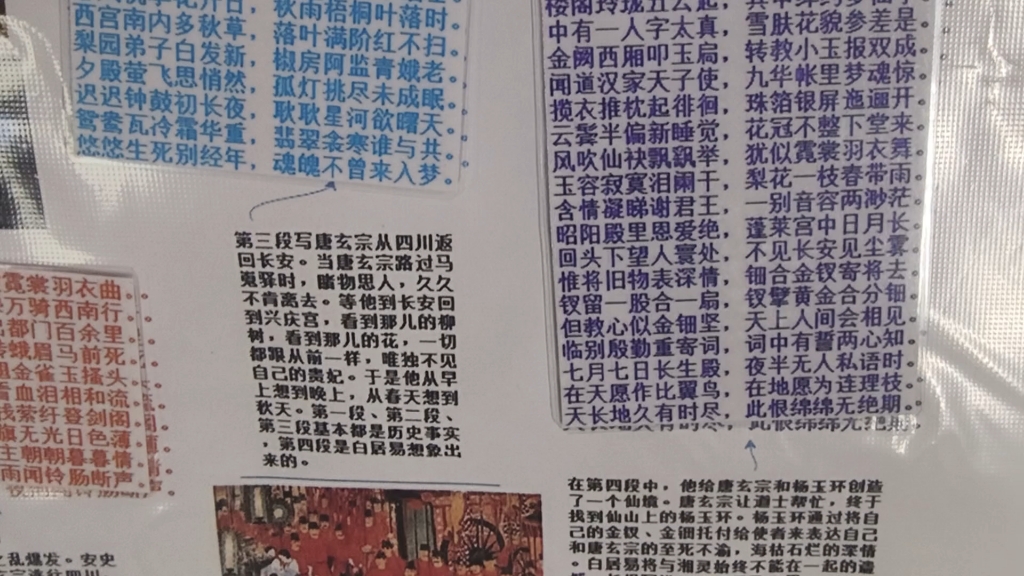 秋雨梧桐叶落时。
西宫南内多秋草，落叶满阶红不扫。
梨园弟子白发新，椒房阿监青娥老。
夕殿萤飞思悄然，孤灯挑尽未成眠。
迟迟钟鼓初长夜，耿耿星河欲曙天。
鸳鸯瓦冷霜华重，翡翠衾寒谁与共。
悠悠生死别经年，魂魄不曾来入梦。
第三段写唐玄宗从四川返
回长安。当唐玄宗路过马
嵬驿时，睹物思人，久久
不肯离去。等他到长安回
到兴庆宫，看到那儿的柳
树，看到那儿的花，一切
都跟从前一样，唯独不见
自己的贵妃。于是他从早
上想到晚上，从春天想到
秋天。第一段、第二段、
第三段基本都是历史事实
，第四段是白居易想象出
来的。
霓裳羽衣曲。
万骑西南行。
都门百余里。
蛾眉马前死。
金雀玉搔头。
血泪相和流。
萦纡登剑阁。
无光日色薄。
朝朝暮暮情。
雨闻铃肠断声。
之乱爆发。安史
楼阁玲珑五云起，
中有一人字太真，雪肤花貌参差是。
金阙西厢叩玉扃，转教小玉报双成。
闻道汉家天子使，九华帐里梦魂惊。
揽衣推枕起徘徊，珠箔银屏迤逦开。
云鬓半偏新睡觉，花冠不整下堂来。
风吹仙袂飘飖举，犹似霓裳羽衣舞。
玉容寂寞泪阑干，梨花一枝春带雨。
含情凝睇谢君王，一别音容两渺茫。
昭阳殿里恩爱绝，蓬莱宫中日月长。
回头下望人寰处，不见长安见尘雾。
惟将旧物表深情，钿合金钗寄将去。
钗留一股合一扇，钗擘黄金合分钿。
但教心似金钿坚，天上人间会相见。
临别殷勤重寄词，词中有誓两心知。
七月七日长生殿，夜半无人私语时。
在天愿作比翼鸟，在地愿为连理枝。
天长地久有时尽，此恨绵绵无绝期。
在第四段中，他给唐玄宗和杨玉环创造
了一个仙境。唐玄宗让道士帮忙，终于
找到仙山上的杨玉环。杨玉环通过将自
己的金钗、金钿托付给使者来表达自己
和唐玄宗的至死不渝，海枯石烂的深情
。白居易将与湘灵始终不能在一起的遗